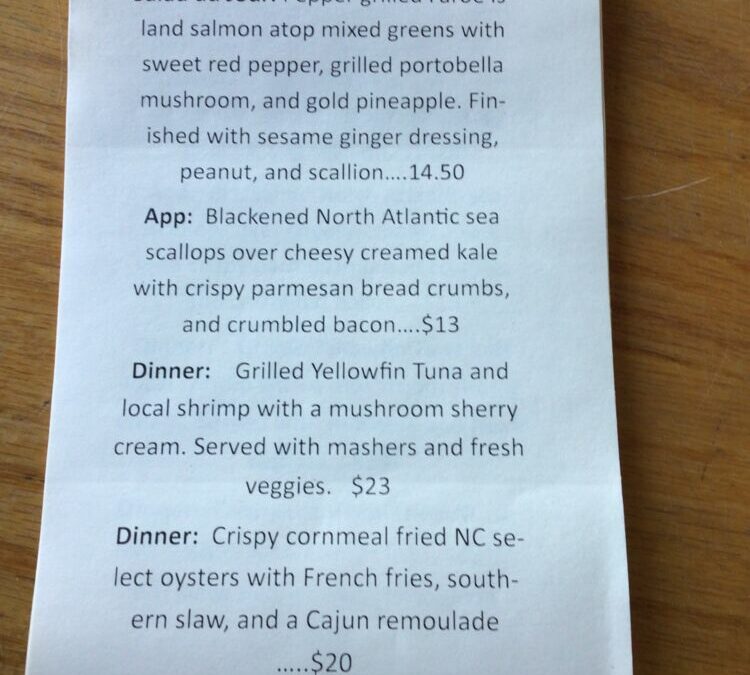 land salmon atop mixed greens with
sweet red pepper, grilled portobella
mushroom, and gold pineapple. Fin-
ished with sesame ginger dressing,
peanut, and scallion....14.50
App: Blackened North Atlantic sea
scallops over cheesy creamed kale
with crispy parmesan bread crumbs,
and crumbled bacon....$13
Dinner: Grilled Yellowfin Tuna and
local shrimp with a mushroom sherry
cream. Served with mashers and fresh
veggies. $23
Dinner: Crispy cornmeal fried NC se-
lect oysters with French fries, south-
ern slaw, and a Cajun remoulade
.....$20